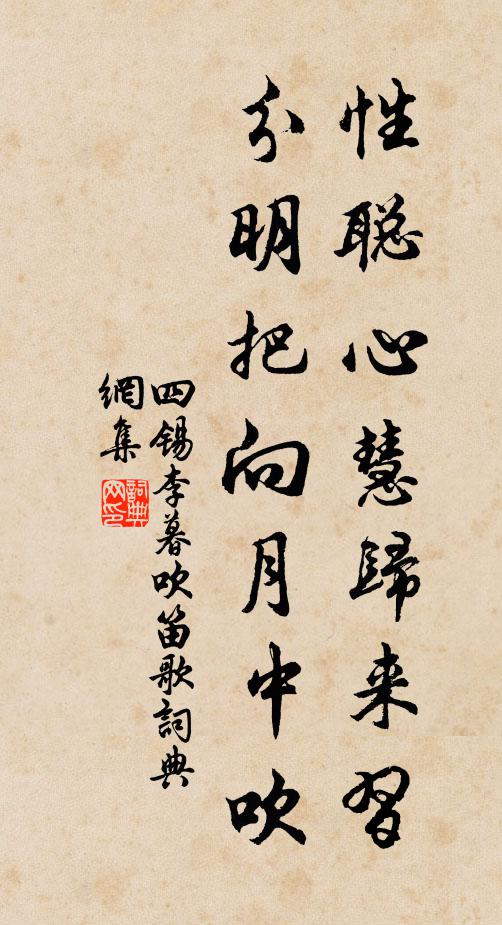 性聪心慧歸来習
分明把向月中吹
四锡李暮吹笛歌詞典
網集
詞典
网印